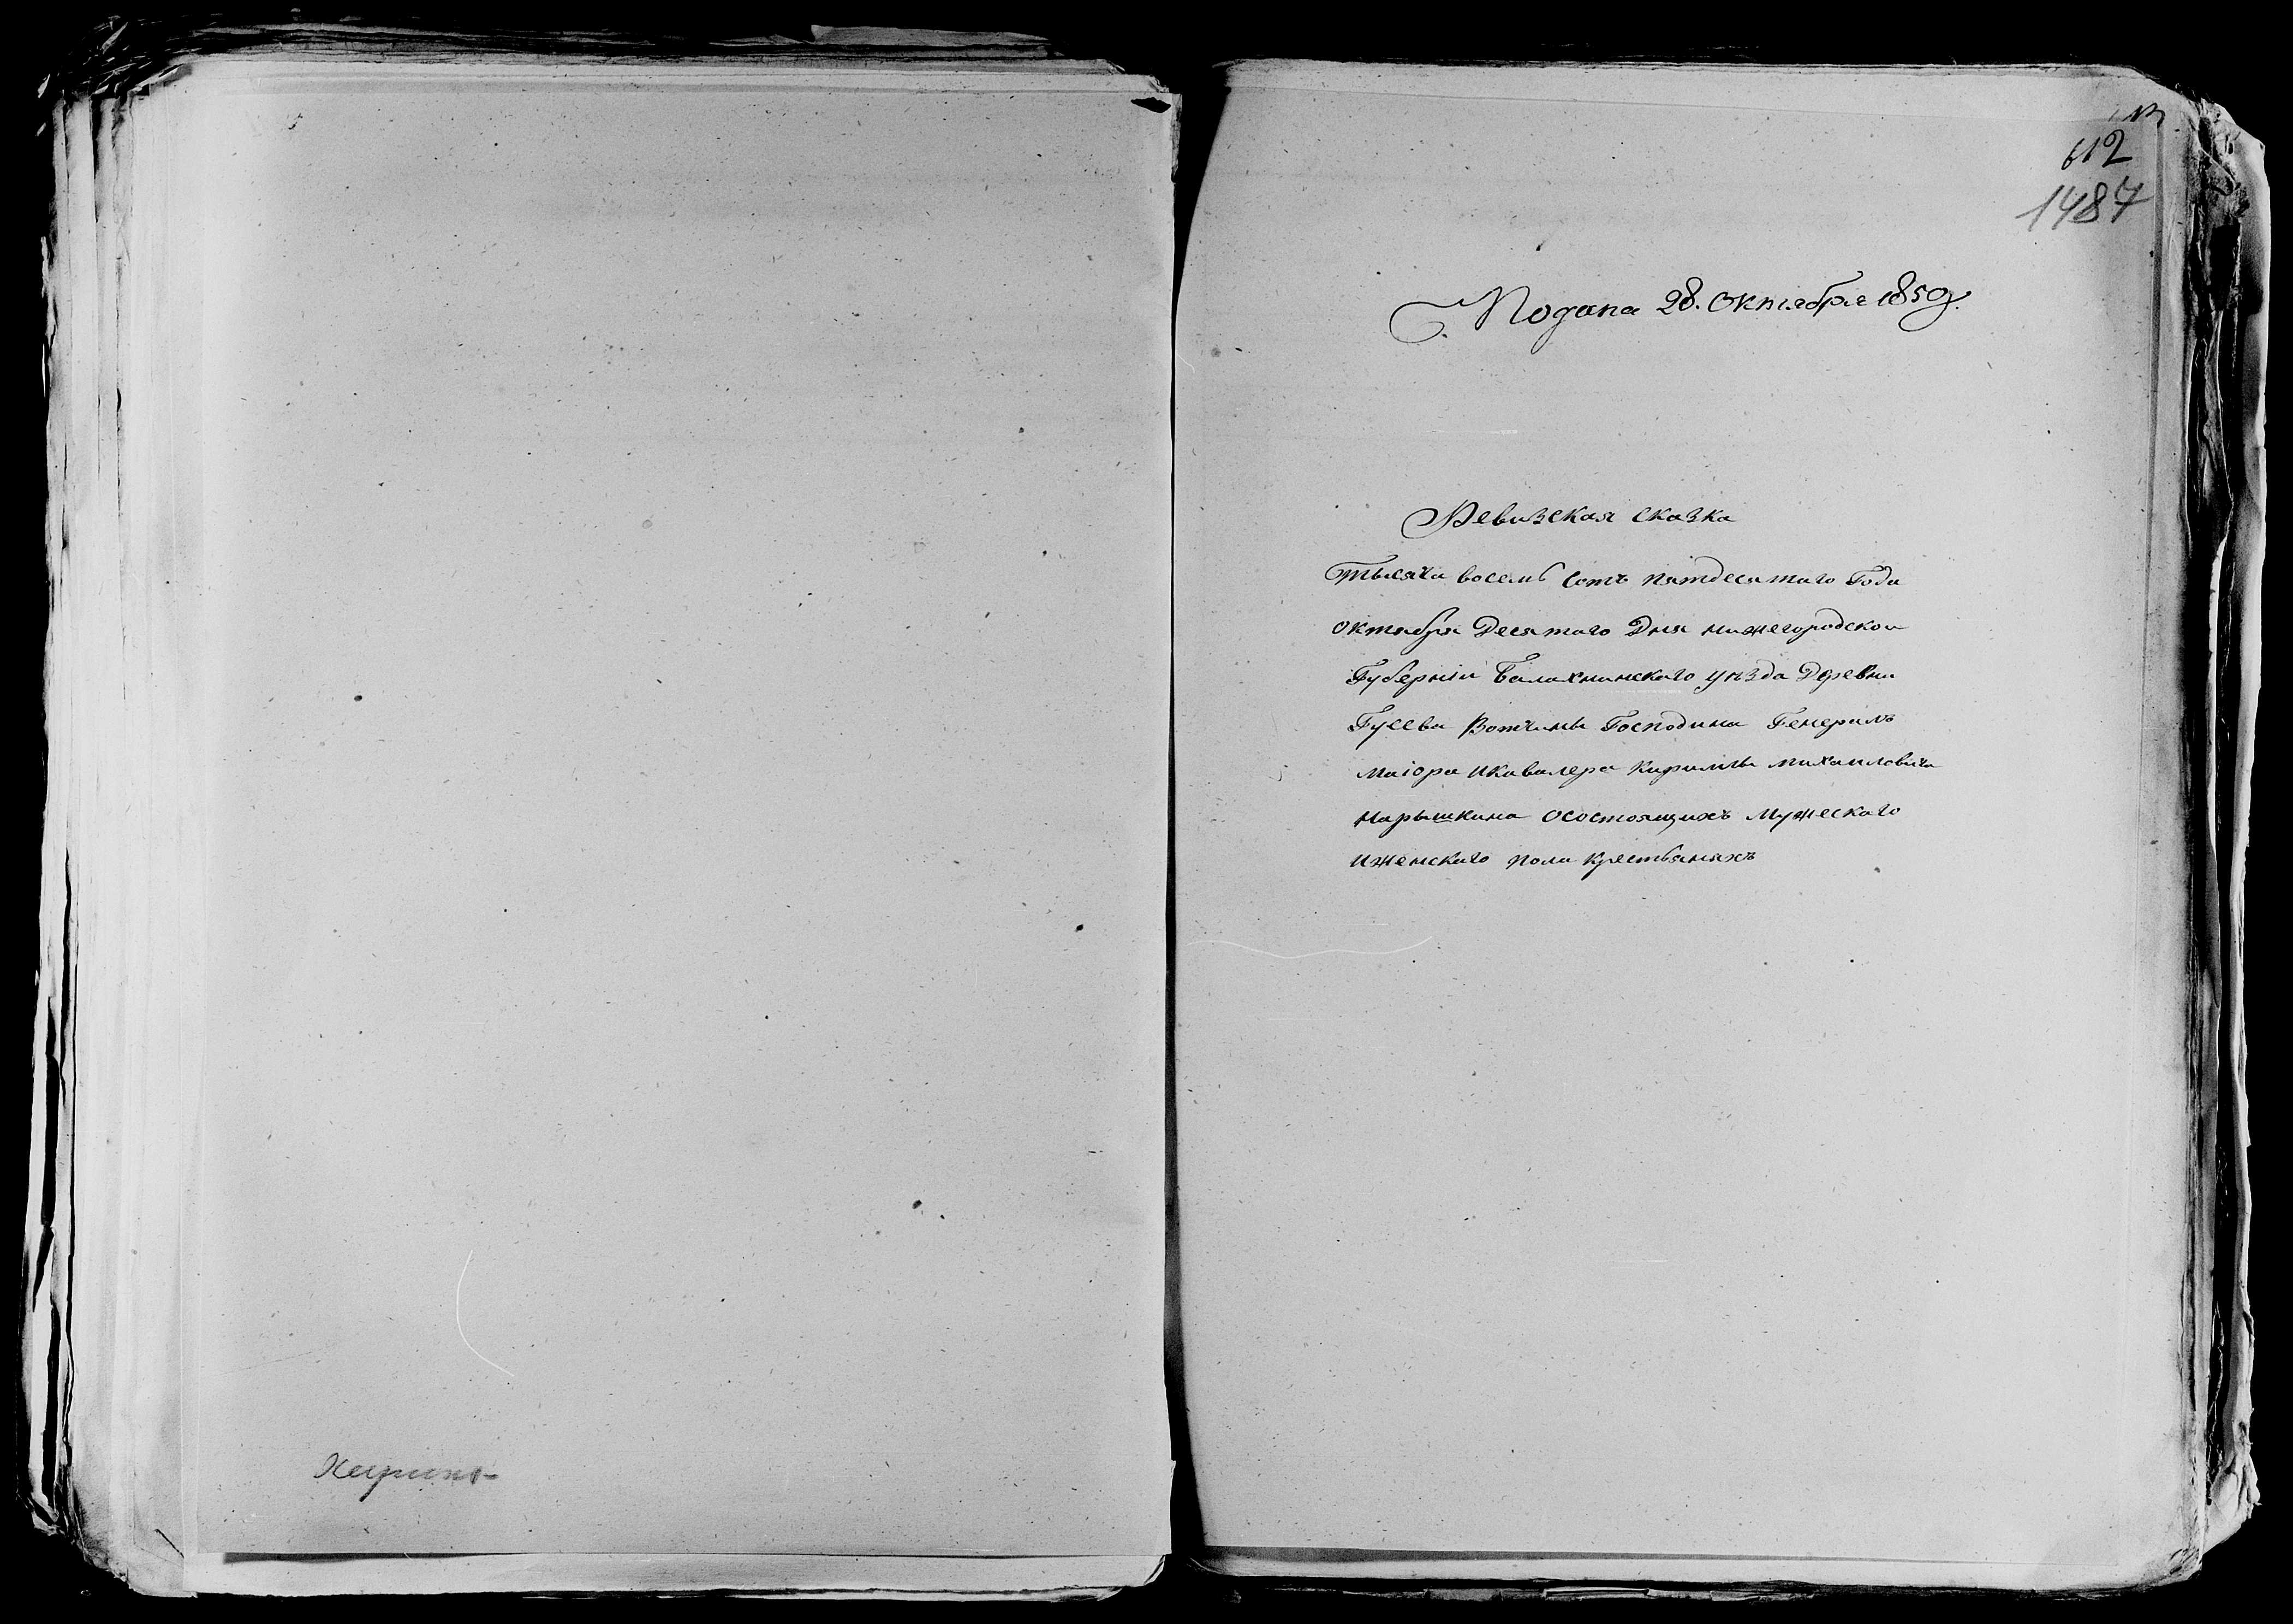 612
1487
Подана 28. Октября 1850 г.
Ревизская сказка
Тысяча восемь сотъ пятдесятаго Года
октября Десятаго Дня нижегородской
Губерніи Балахнинскаго уѣзда Деревни
Гусева Вотчины Господина Генералъ
маіора икавалера Кирилы михаиловича
нарышкина осостоящихъ мужескаго
иженскаго пола крестьянахъ